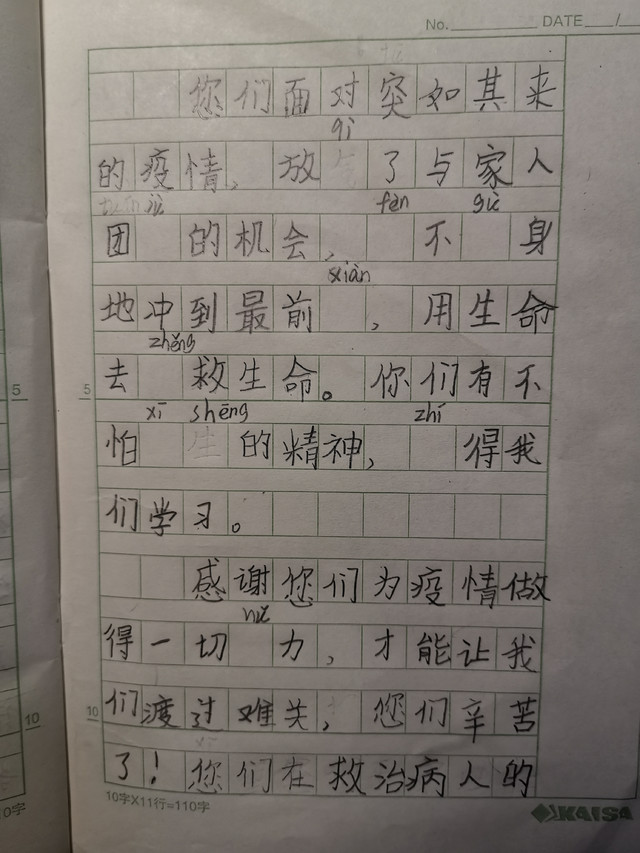 No. DATE /
您们面对突如其来
qì
的疫情，放 了与家人
jù fèn gù
团 的机会， 不 身
xiàn
地冲到最前 ，用生命
zhěng
去 救生命。你们有不
xī shēng zhí
怕 生 的精神， 得我
们学习。
感谢您们为疫情做
nǔ
得一切 力，才能让我
们渡过难关，您们辛苦
了！您们在救治病人的
10字X11行=110字
KAISA
5
10
5
10
0字